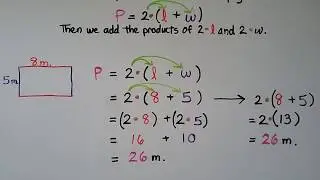 P = 2·(l + w)
Then we add the products of 2·l and 2·w.
8m.
5m
P = 2·(l + w)
= 2·(8 + 5) → 2·(8 + 5)
= (2·8) + (2·5) = 2·(13)
= 16 + 10 = 26 m.
= 26 m.